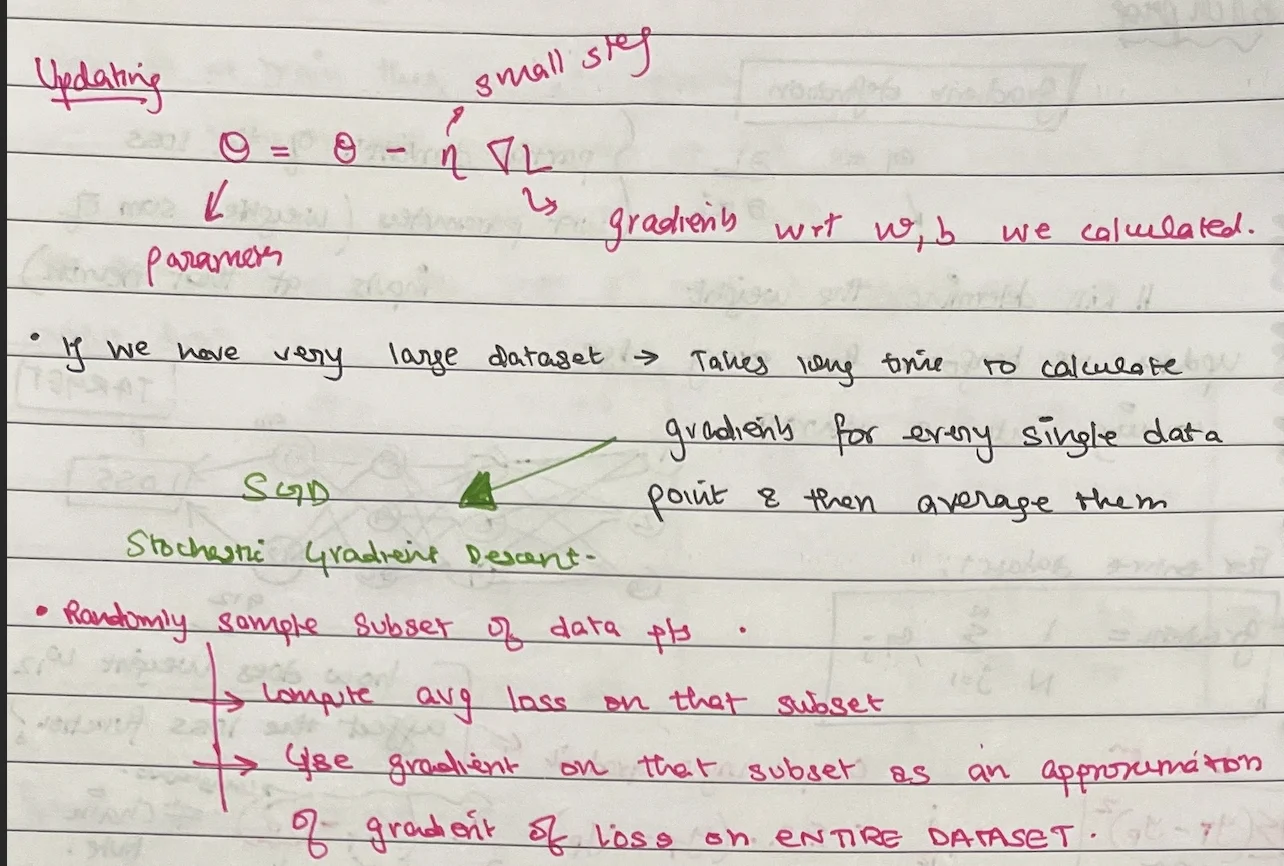 Updating
small step
θ = θ - η ∇L
gradients wrt w, b we calculated.
params
• If we have very large dataset → Takes long time to calculate
gradients for every single data
point & then average them
SGD
Stochastic Gradient Descent-
• Randomly sample subset of data pts .
→ Compute avg loss on that subset
→ Use gradient on that subset as an approximation
of gradient of loss on ENTIRE DATASET.